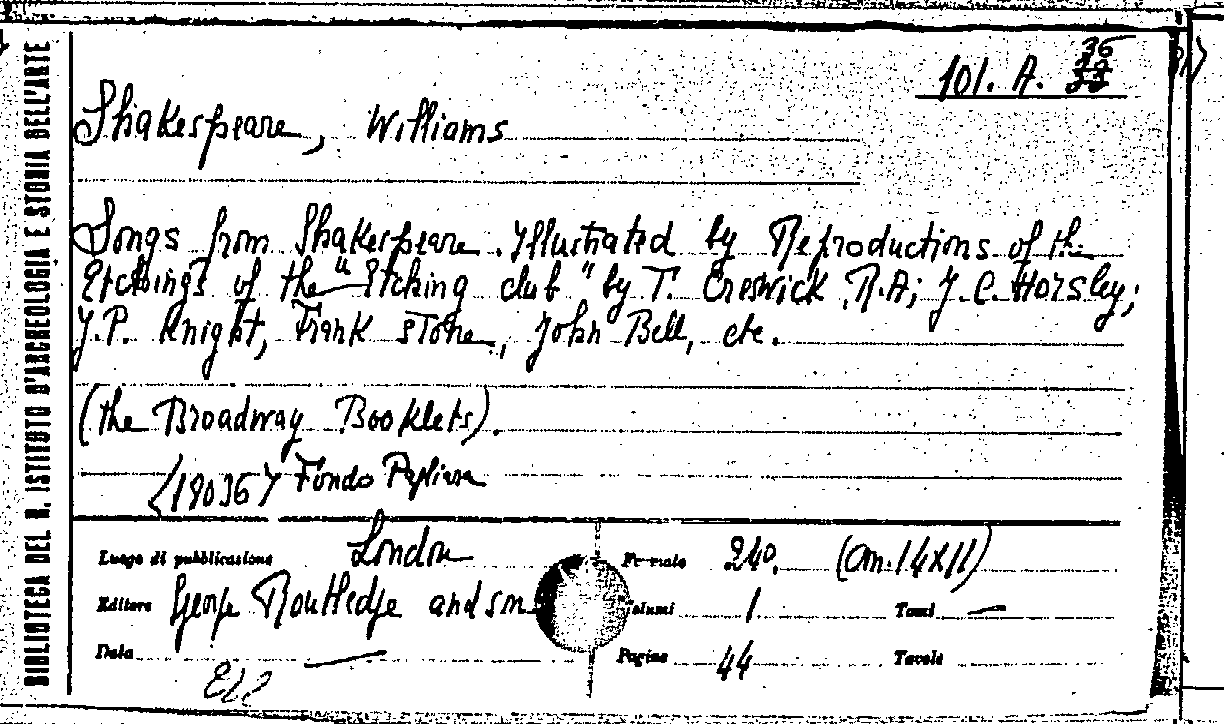 BIBLIOTECA DEL R. ISTITUTO D'ARCHEOLOGIA E STORIA DELL'ARTE
101. A. 36
33
Shakespeare, Williams
Songs from Shakespeare. Illustrated by Reproductions of the
Etchings of the "Etching club" by T. Creswick R.A; J.C. Horsley;
J.P. Knight, Frank Stone, John Bell, etc.
(the Broadway Booklets).
<19036> Fondo Pagliara
Luogo di pubblicazione London
Formato 24o. (cm. 14x11)
Editore George Routledge and son
Volumi 1 Tomi —
Data —
Pagine 44 Tavole